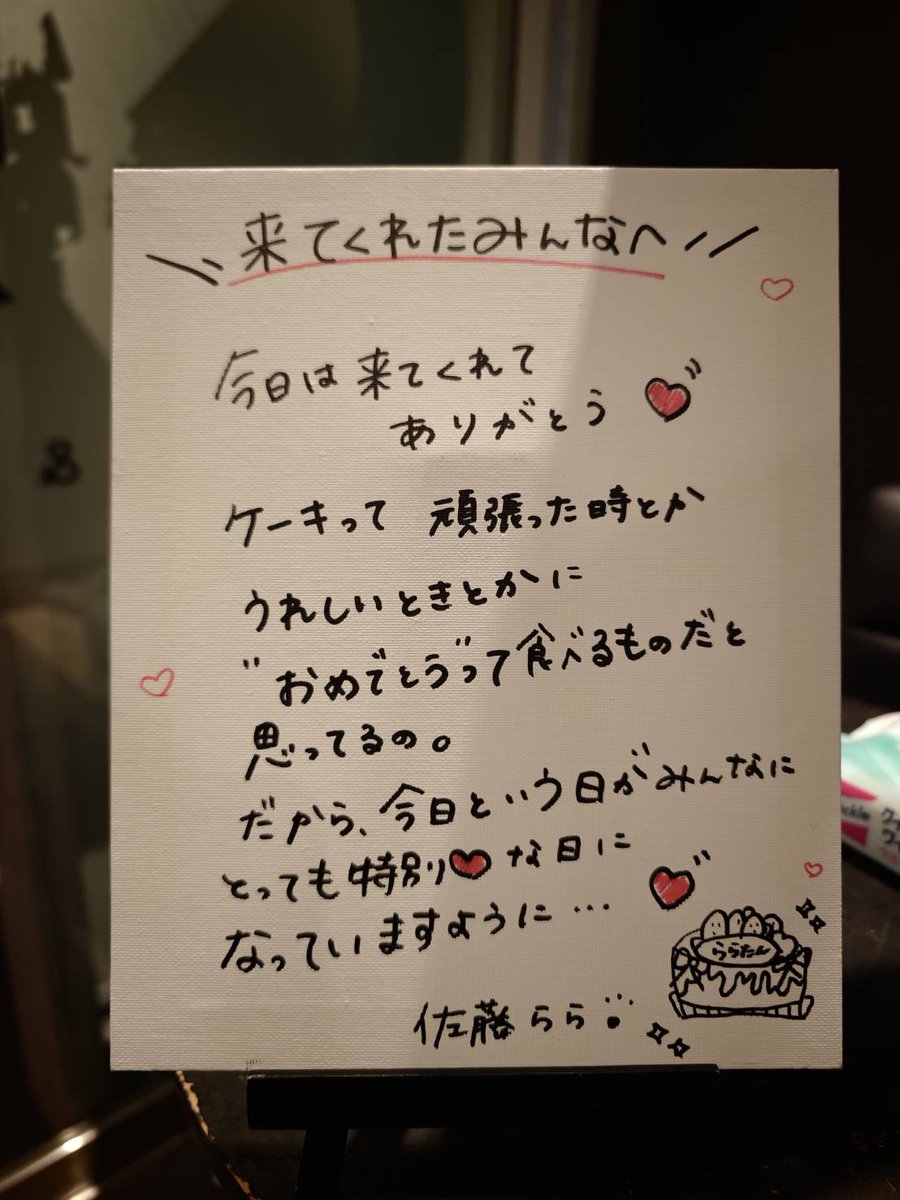 来てくれたみんなへ
今日は来てくれて
ありがとう
ケーキって 頑張った時とか
うれしいときとかに
"おめでとう"って食べるものだと
思ってるの。
だから、今日という日がみんなに
とっても特別♥な日に
なっていますように…
ららたん
佐藤らら